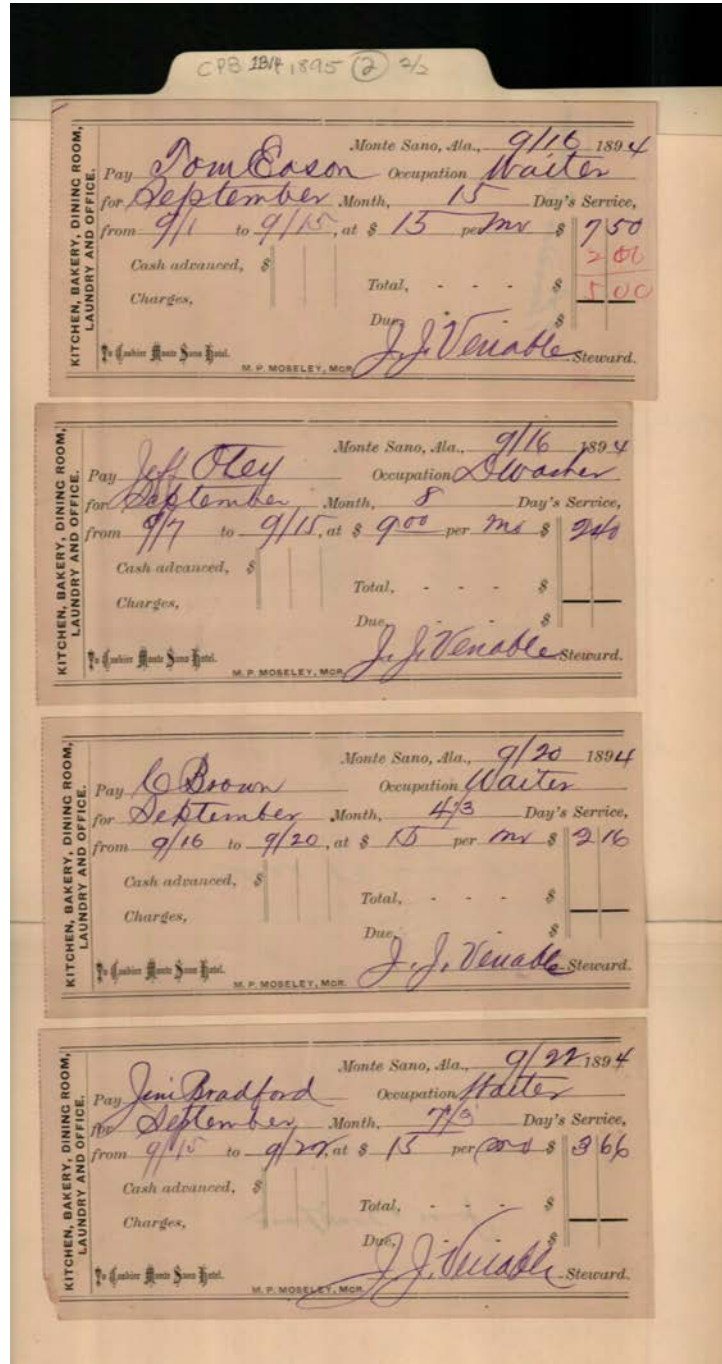 CPB 1B14 1895 (2) 2/2
KITCHEN, BAKERY, DINING ROOM,
LAUNDRY AND OFFICE.
Monte Sano, Ala., 9/16 1894
Pay Tom Eason Occupation Waiter
for September Month, 15 Day's Service,
from 9/1 to 9/15, at $ 15 per mo $ 7 50
2 00
Cash advanced, $
Total, - - - $ 5 00
Charges,
Due, - - $
J. J. Venable Steward.
To Cashier Monte Sano Hotel.
M. P. MOSELEY, MGR.
KITCHEN, BAKERY, DINING ROOM,
LAUNDRY AND OFFICE.
Monte Sano, Ala., 9/16 1894
Pay Jeff Otey Occupation D Washer
for September Month, 8 Day's Service,
from 9/7 to 9/15, at $ 9 00 per mo $ 2 40
Cash advanced, $
Total, - - - $
Charges,
Due, - - $
J. J. Venable Steward.
To Cashier Monte Sano Hotel.
M. P. MOSELEY, MGR.
KITCHEN, BAKERY, DINING ROOM,
LAUNDRY AND OFFICE.
Monte Sano, Ala., 9/20 1894
Pay C Brown Occupation Waiter
for September Month, 4 1/3 Day's Service,
from 9/16 to 9/20, at $ 15 per mo $ 2 16
Cash advanced, $
Total, - - - $
Charges,
Due, - $
J. J. Venable Steward.
To Cashier Monte Sano Hotel.
M. P. MOSELEY, MGR.
KITCHEN, BAKERY, DINING ROOM,
LAUNDRY AND OFFICE.
Monte Sano, Ala., 9/22 1894
Pay Jim Bradford Occupation Waiter
for September Month, 7 1/3 Day's Service,
from 9/15 to 9/22, at $ 15 per mo $ 3 66
Cash advanced, $
Total, - - - $
Charges,
Due, $
J. J. Venable Steward.
To Cashier Monte Sano Hotel.
M. P. MOSELEY, MGR.